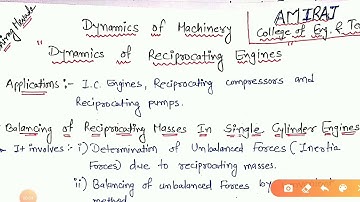 Dynamics of Machinery
AMIRAJ
College of Eng. & Te
"Dynamics of Reciprocating Engines"
Applications :- I.C. Engines, Reciprocating compressors and
Reciprocating pumps.
Balancing of Reciprocating Masses In Single Cylinder Engines
It involves :- i) Determination of Unbalanced Forces (Inertia
Forces) due to reciprocating masses.
ii) Balancing of unbalanced Forces by
method